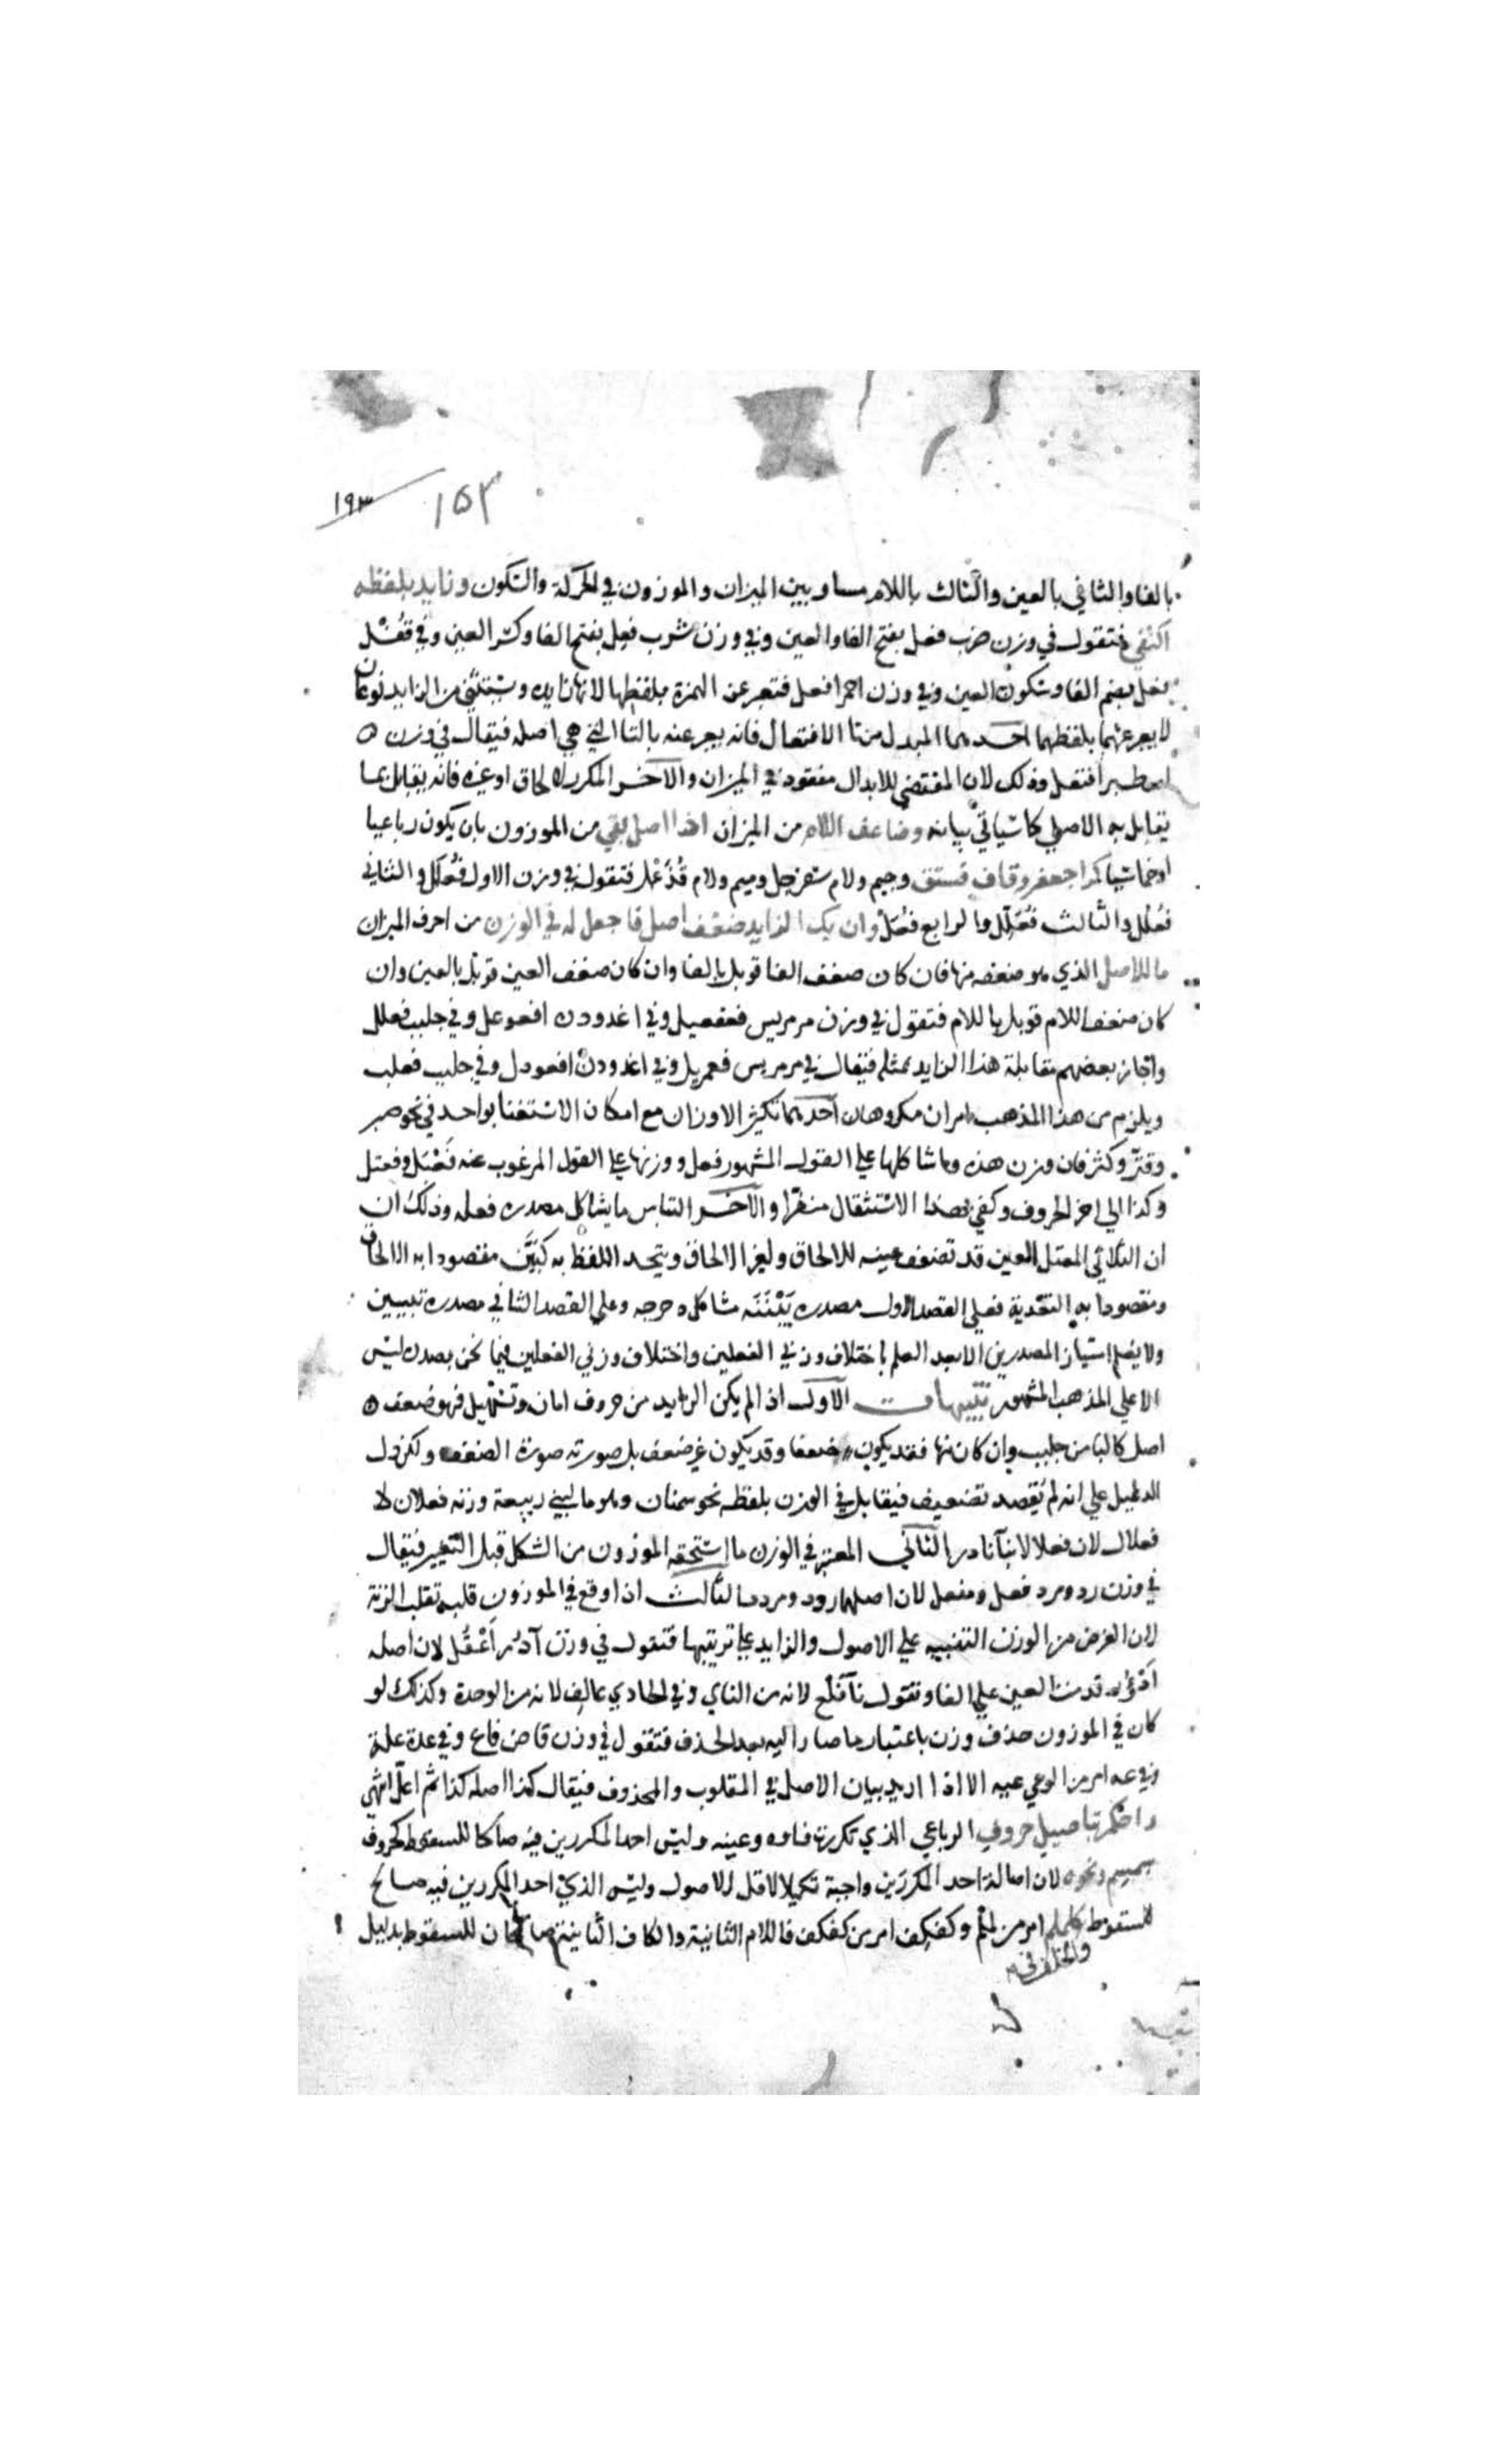 ١٩٣ ١٥٣
بالفا والثاني بالعين والثالث باللام مساو بين الميزان والموزون في الحركة والسكون وزايد بلفظه
اكتفي فتقول في وزن ضرب فعل بفتح الفا والعين وفي وزن شرب فعل بفتح الفا وكسر العين وفي قفْل
فعل بضم الفا وسكون العين وفي وزن احمر افعل فتعبر عن الهمزة بلفظها لانها زايده ويستثني من الزايد نوعان
لا يعبر عنهما بلفظهما احدهما المبدل من تا الافتعال فانه يعبر عنه بالتا التي هي اصله فيقال في وزن
اصطبر افتعل وذلك لان المقتضي للابدال مفقود في الميزان والاخر المكرر لالحاق او غيره فانه يقابل بما
يقابل به الاصلي كما سياتي بيانه وضاعف اللام من الميزان اذا اصل بقي من الموزون بان يكون رباعيا
او خماسيا كرا جعفر وقاف فستق وجيم ولام سفرجل وميم ولام قُذَعْمل فتقول في وزن الاول فعلل والثاني
فعلل والثالث فعلل والرابع فعلل وان يك الزايد ضعف اصل فاجعل له في الوزن من احرف الميزان
ما للاصل الذي هو ضعفه منها فان كان ضعف الفا قوبل بالفا وان كان ضعف العين قوبل بالعين وان
كان ضعف اللام قوبل باللام فتقول في وزن مرمريس فعفعيل وفي اغدودن افعوعل وفي جلبب فعلل
واجاز بعضهم مقابلة هذا الزايد بمثله فيقال في مرمريس فعمريل وفي اغدودن افعودل وفي جلبب فعلب
ويلزم من هذا المذهب امران مكروهان احدهما تكثير الاوزان مع امكان الاستغنا بواحد في نحو صبر
وقتر وكثر فان وزن هذه وما شاكلها علي القول المشهور فعل ووزنها علي القول المرغوب عنه فعبل وفعتل
وكذا الي اخر الحروف وكفي بهذا الاستثقال منفرا والاخر التباس ما يشاكل مصدره فعله وذلك ان
ان الثلاثي المعتل العين قد تضعف عينه للالحاق ولغير الالحاق ويتحد اللفظ به كبيَّن مقصودا به الالحاق
ومقصودا به التعدية فعلي القصد الاول مصدره بَيْنَنَه مشاكل دحرجه وعلي القصد الثاني مصدره تبيين
ولا يعلم امتياز المصدرين الا بعد العلم باختلاف وزني الفعلين واختلاف وزني الفعلين فيما نحن بصدده ليس
الا علي المذهب المشهور تنبيهات الاول اذا لم يكن الزايد من حروف امان وتسهيل فهو ضعف
اصل كالبا من جلبب وان كان منها فقد يكون ضعفا وقد يكون غير ضعف بل صورته صورة الضعف ولكن دل
الدليل علي انه لم يقصد تضعيف فيقابل في الوزن بلفظه نحو سمنان وهو ما لبني ربيعة وزنه فعلان لا
فعلال لان فعلالا بنا نادر الثاني المعتبر في الوزن ما استحقه الموزون من الشكل قبل التغيير فيقال
في وزن رد ومرد فعل ومفعل لان اصلهما ردد ومردد الثالث اذا وقع في الموزون قلب تقلب الزنة
لان الغرض من الوزن التنبيه علي الاصول والزايد علي ترتيبها فتقول في وزن آدُر اَعْفُل لان اصله
اَدْوُر قدمت العين علي الفا وتقول نآ فلع لانه من الناي وفي الحادي عالف لانه من الوحدة وكذلك لو
كان في الموزون حذف وزن باعتبار ما صار اليه بعد الحذف فتقول في وزن قاض فاع وفي عدة علة
وفي عه امر من الوعي عيه الا اذا اريد بيان الاصل في المقلوب والمحذوف فيقال كذا اصله كذا ثم اعل انتهي
واحكم بتاصيل حروف الرباعي الذي تكررت فاوه وعينه وليس احد المكررين فيه صالحا للسقوط كحروف
سمسم ونحوه لان اصالة احد المكررين واجبة تكميلا لاقل الاصول وليس الذي احد المكررين فيه صالح
للسقوط كلملم امر من لملم وكفكف امر من كفكف فاللام الثانية والكاف الثانية صالحان للسقوط بدليل
والخلف في